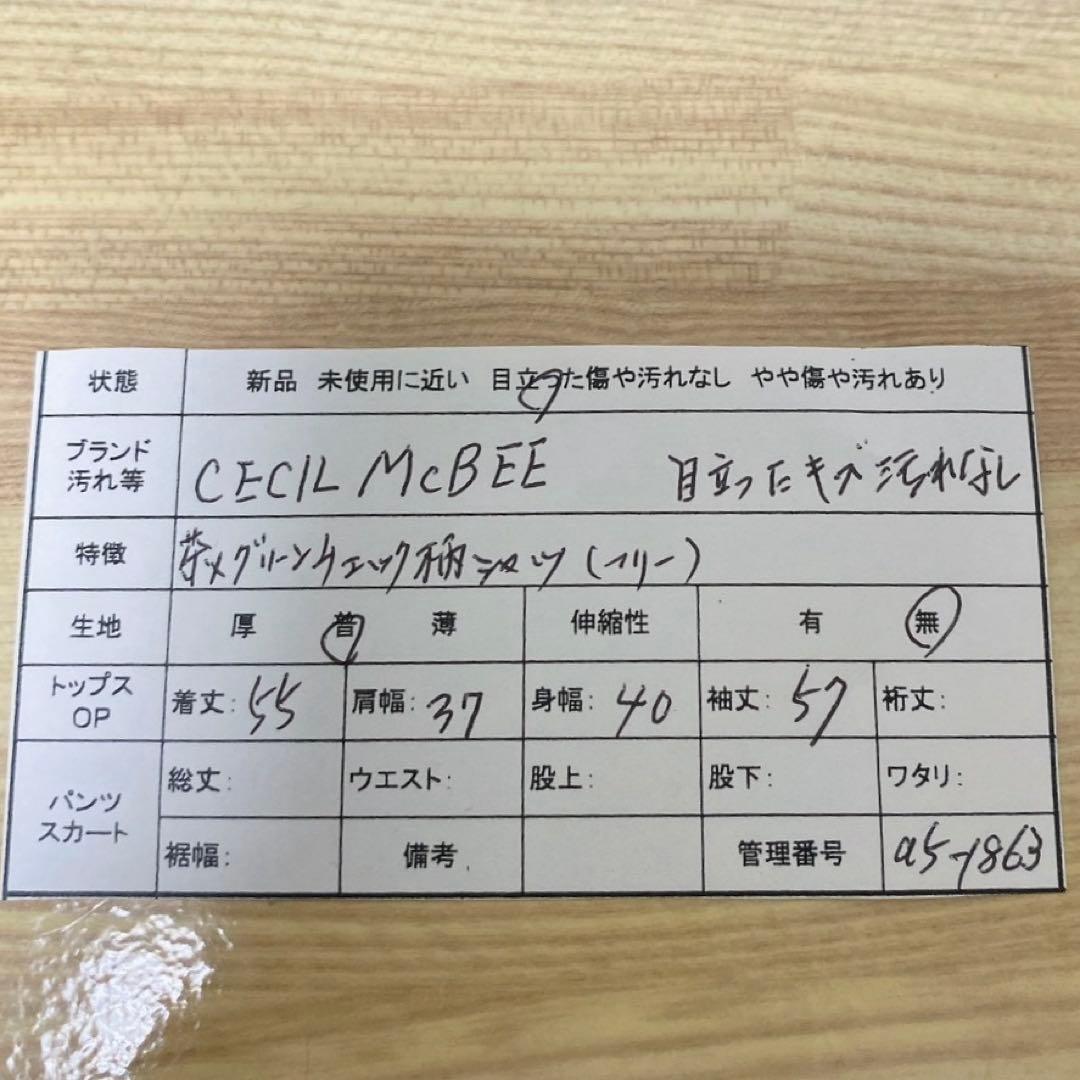 状態 新品 未使用に近い 目立った傷や汚れなし やや傷や汚れあり
ブランド 汚れ等 CECIL McBEE 目立ったキズ汚れなし
特徴 茶×グリーンチェック柄シャツ(フリー)
生地 厚 普 薄 伸縮性 有 無
トップス OP 着丈: 55 肩幅: 37 身幅: 40 袖丈: 57 裄丈:
パンツ スカート 総丈: ウエスト: 股上: 股下: ワタリ:
裾幅: 備考 管理番号 a5-1863